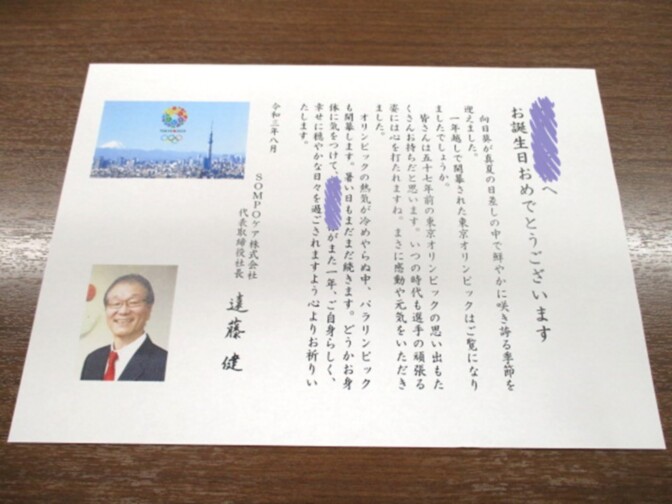 へ
お誕生日おめでとうございます
向日葵が真夏の日差しの中で鮮やかに咲き誇る季節を
迎えました。
一年越しで開幕された東京オリンピックはご覧になり
ましたでしょうか。
皆さんは五十七年前の東京オリンピックの思い出もた
くさんお持ちだと思います。いつの時代も選手の頑張る
姿には心を打たれますね。まさに感動や元気をいただき
ました。
オリンピックの熱気が冷めやらぬ中、パラリンピック
も開幕します。暑い日もまだまだ続きます。どうかお身
体に気をつけて、がまた一年、ご自身らしく、
幸せに穏やかな日々を過ごされますよう心よりお祈りい
たします。
令和三年八月
SOMPOケア株式会社
代表取締役社長
遠藤健